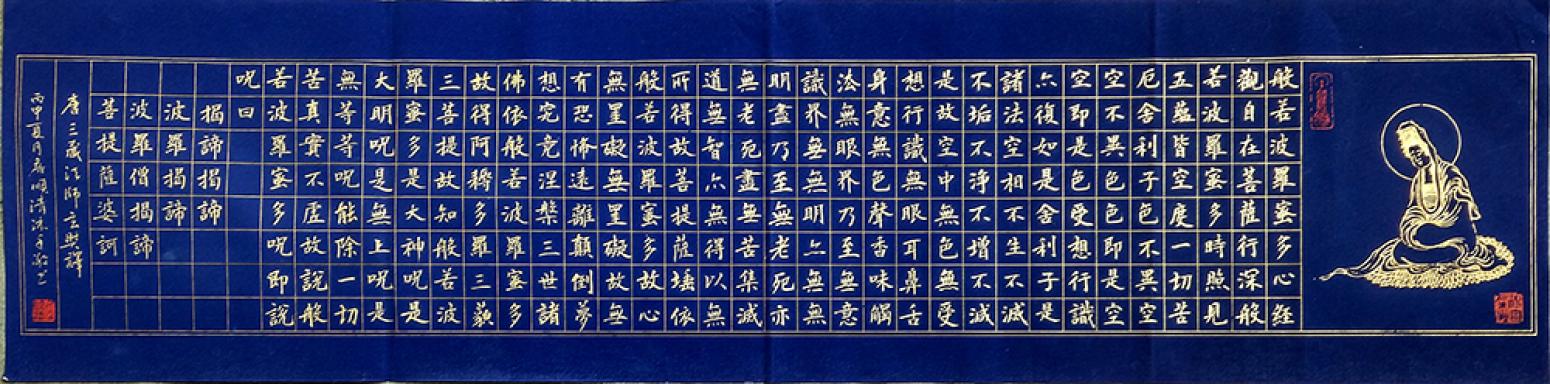 般若波羅蜜多心経
觀自在菩薩行深般
若波羅蜜多時照見
五蘊皆空度一切苦
厄舍利子色不異空
空不異色色即是空
空即是色受想行識
亦復如是舍利子是
諸法空相不生不滅
不垢不淨不增不減
是故空中無色無受
想行識無眼耳鼻舌
身意無色聲香味觸
法無眼界乃至無意
識界無無明亦無無
明盡乃至無老死亦
無老死盡無苦集滅
道無智亦無得以無
所得故菩提薩埵依
般若波羅蜜多故心
無罣礙無罣礙故無
有恐怖遠離顛倒夢
想究竟涅槃三世諸
佛依般若波羅蜜多
故得阿耨多羅三藐
三菩提故知般若波
羅蜜多是大神呪是
大明呪是無上呪是
無等等呪能除一切
苦真實不虛故說般
若波羅蜜多呪即說
呪曰
揭諦揭諦
波羅揭諦
波羅僧揭諦
菩提薩婆訶
唐三藏法師玄奘譯
丙申夏月唐順清沐手敬書